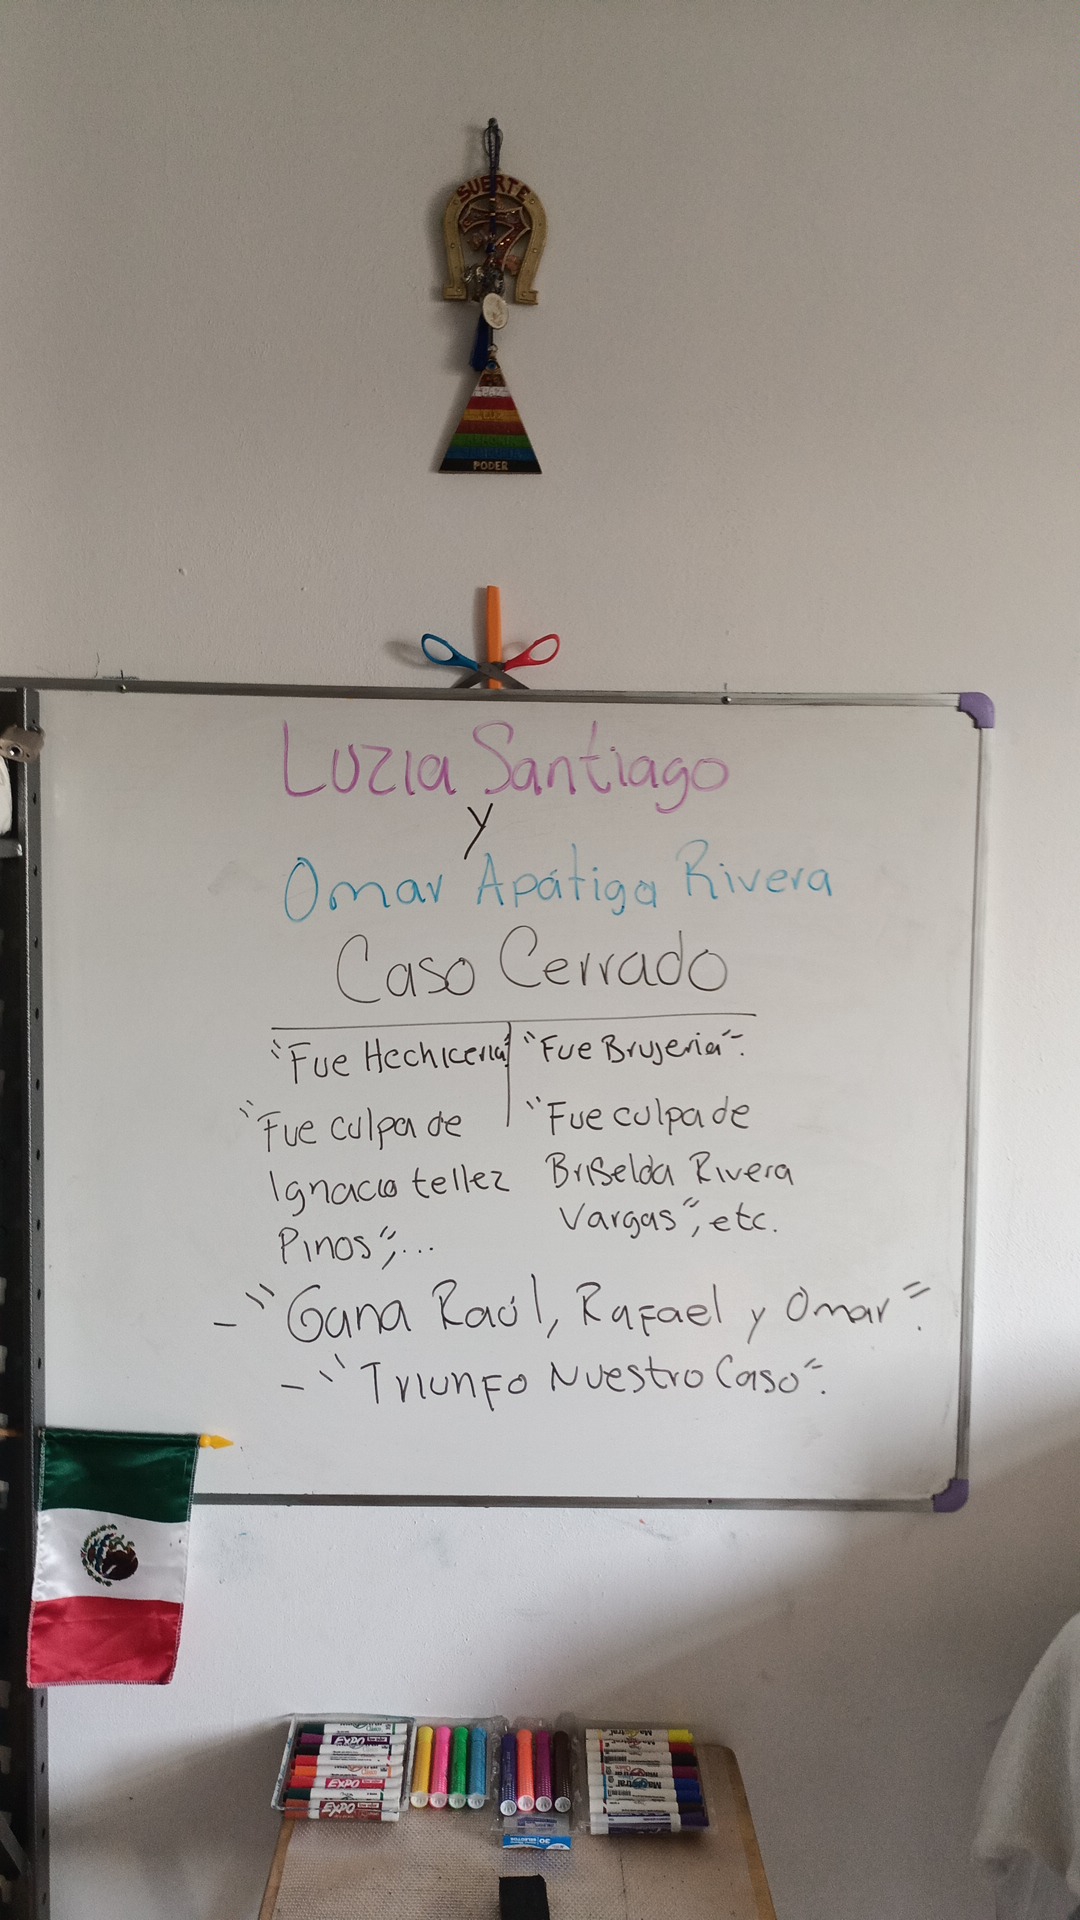 SUERTE
PODER
Luzia Santiago
y
Omar Apátiga Rivera
Caso Cerrado
"Fue Hechicería" "Fue Brujería".
"Fue culpa de
Ignacio tellez
Pinos",...
"Fue culpa de
Briselda Rivera
Vargas", etc.
- "Gana Raúl, Rafael y Omar".
- "Triunfo Nuestro Caso".
EXPO
EXPO
EXPO
Magistral